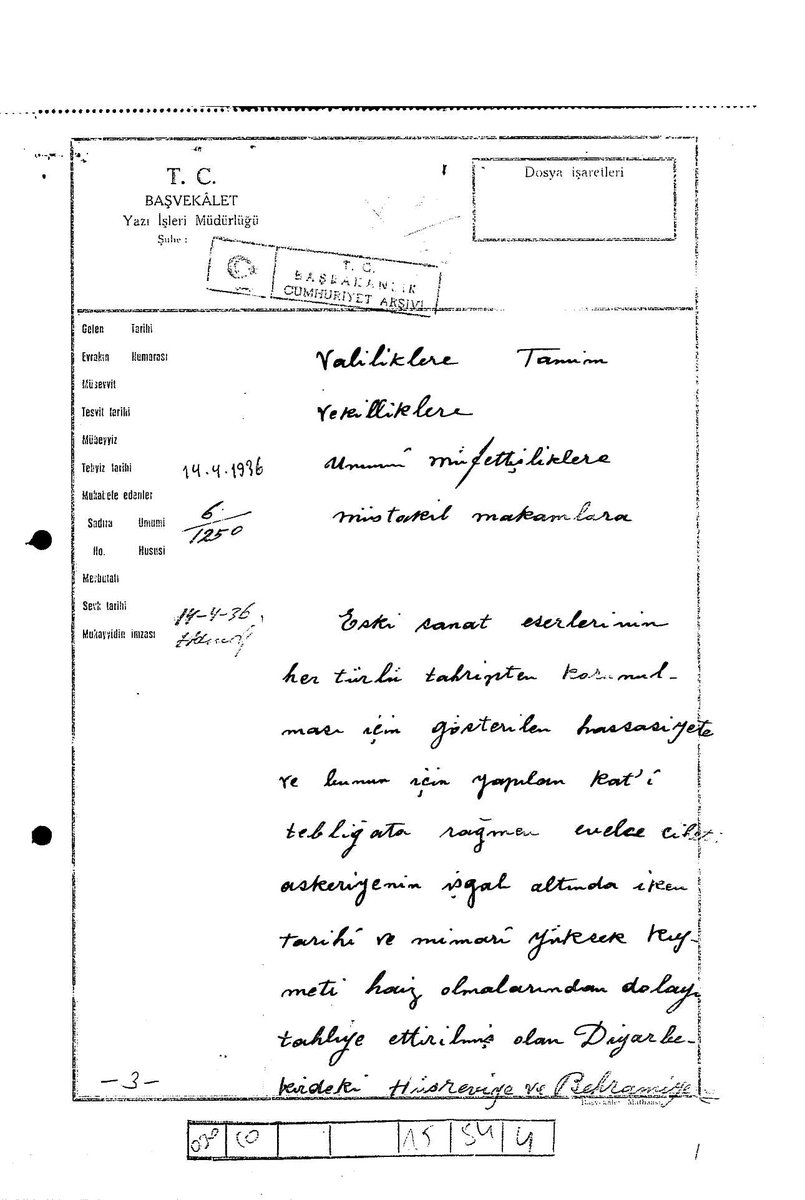 T. C.
BAŞVEKÂLET
Yazı İşleri Müdürlüğü
Şube :
Dosya işaretleri
T. C.
BAŞBAKANLIK
CUMHURİYET ARŞİVİ
Gelen Tarihi
Evrakın Numarası
Müsevvit
Tesvit tarihi
Mübeyyiz
Tebyiz tarihi 14.4.1936
Mukabele edenler
Sadıra Umumi 6/1250
No. Hususi
Merbutatı
Sevk tarihi 14-4-36
Mukayyidin imzası
Valiliklere Tamim
Vekilliklere
Umumî müfettişliklere
müstakil makamlara
Eski sanat eserlerinin
her türlü tahripten korunul-
ması için gösterilen hassasiyete
ve bunun için yapılan kat'î
tebliğata rağmen evelce ciheti
askeriyenin işgal altında iken
tarihî ve mimarî yüksek kıy-
meti haiz olmalarından dolayı
tahliye ettirilmiş olan Diyarbe-
kirdeki Hüsreviye ve Behramiye
-3-
Başvekâlet Matbaası
030 10 15 54 4
1